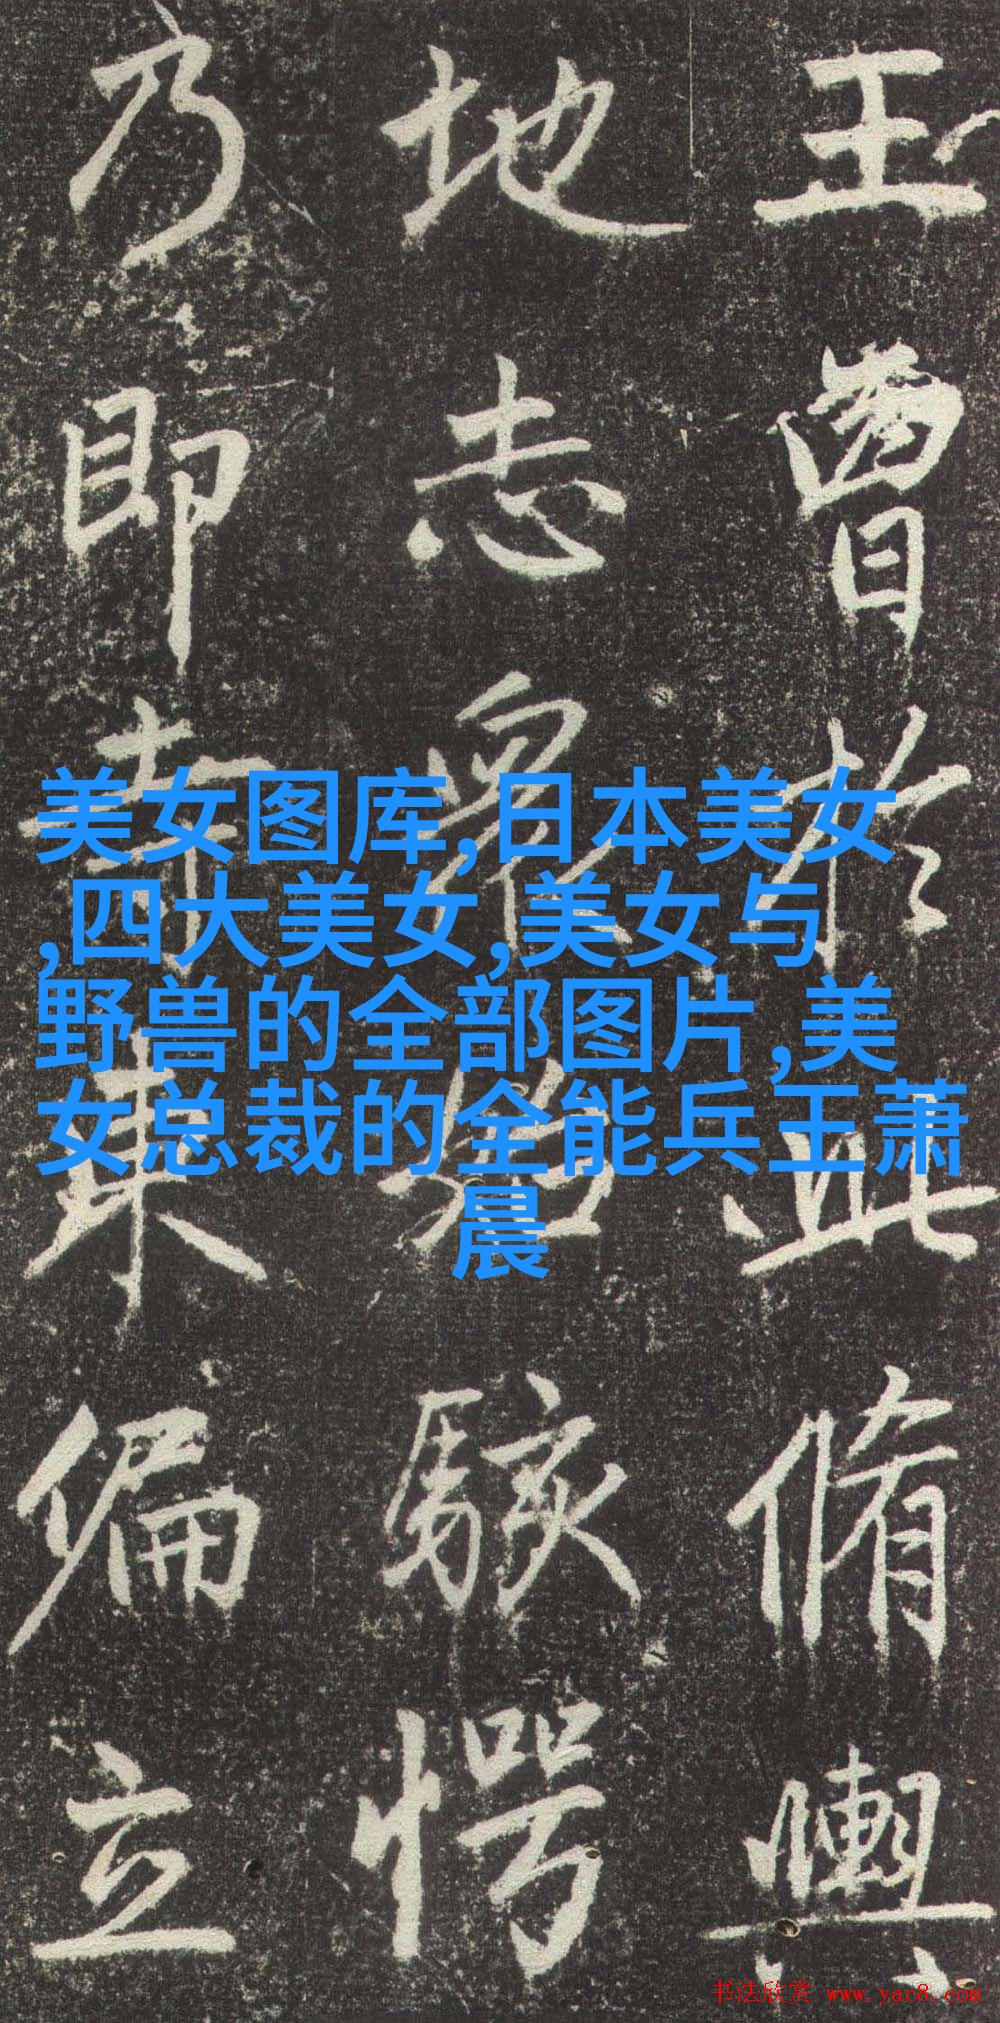 王曾於此脩輿
地志衆始駭愕
乃即寺東偏立
美女图库,日本美女
,四大美女,美女与
野兽的全部图片,美
女总裁的全能兵王萧
晨
书法欣赏 www.yac8.com